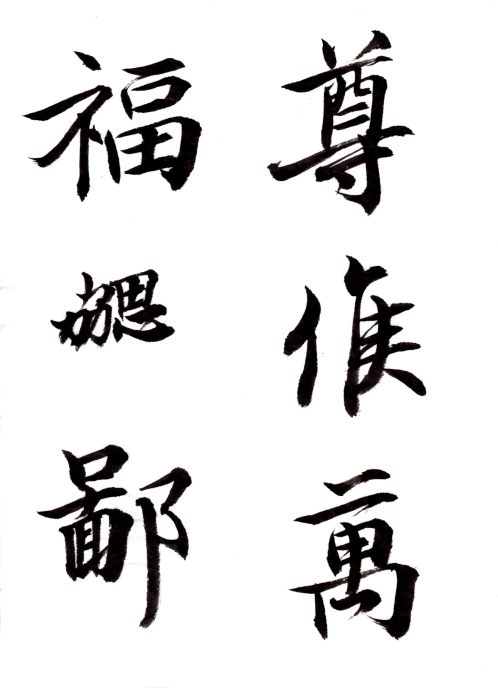 尊候萬
福勰鄙